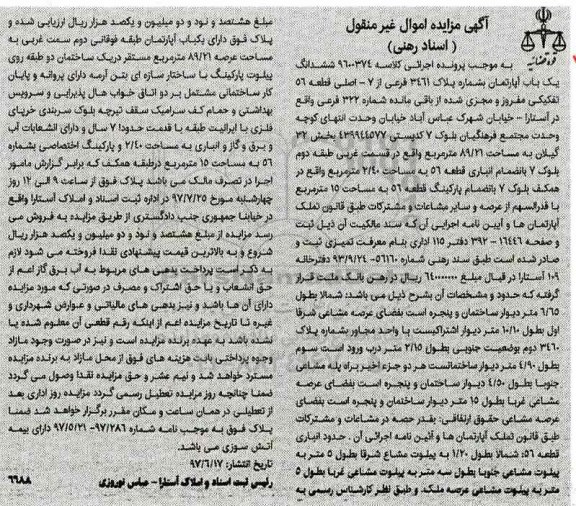 آگهی مزایده اموال غیر منقول
( اسناد رهنی )
قوه قضائیه
به موجب پرونده اجرائی کلاسه ۹۶۰۰۳۷۴ ششدانگ
یک باب آپارتمان بشماره پلاک ۳۴۶۱ فرعی از ۷ - اصلی قطعه ۵۶
تفکیکی مفروز و مجزی شده از باقی مانده شماره ۳۲۲ فرعی واقع
در آستارا - خیابان شهرک عباس آباد خیابان وحدت انتهای کوچه
وحدت مجتمع فرهنگیان بلوک ۷ کدپستی ۴۳۹۹۱۴۵۰۷۷ بخش ۳۲
گیلان به مساحت ۸۹/۲۱ مترمربع واقع در قسمت غربی طبقه دوم
بلوک ۷ بانضمام انباری قطعه ۵۶ به مساحت ۲/۴۰ مترمربع واقع در
همکف بلوک ۷ بانضمام پارکینگ قطعه ۵۶ به مساحت ۱۵ مترمربع
با قدرالسهم از عرصه و سایر مشاعات و مشترکات طبق قانون تملک
آپارتمان ها و آیین نامه اجرایی آن که سند مالکیت آن ذیل ثبت
۱۶۴۴۶ و صفحه ۳۹۲ دفتر ۱۱۵ اداری بنام معرفت تمیزی ثبت و
صادر شده است طبق سند رهنی شماره ۵۶۱۶۰ - ۹۳/۹/۲۴ دفترخانه
۱۰۹ آستارا در قبال مبلغ ۶۴۰۰۰۰۰۰۰ ریال در رهن بانک ملت قرار
گرفته که حدود و مشخصات آن بشرح ذیل می باشد: شمالا بطول
۶/۶۵ متر دیوار ساختمان و پنجره است بفضای عرصه مشاعی شرقا
اول بطول ۱۰/۱۰ متر دیوار اشتراکیست با واحد مجاور بشماره پلاک
۳۴۶۰ دوم بوضعیت جنوبی بطول ۲/۱۵ متر درب ورود است سوم
بطول ۴/۹۰ متر دیوار ساختمانست هر دو جزء اخیر براه پله مشاعی
جنوبا بطول ۴/۵۰ دیوار ساختمان و پنجره است بفضای عرصه
مشاعی غربا بطول ۱۵ متر دیوار ساختمان و پنجره است بفضای
عرصه مشاعی حقوق ارتفاقی: بقدر حصه در مشاعات و مشترکات
طبق قانون تملک آپارتمان ها و آئین نامه اجرائی آن. حدود انباری
قطعه ۵۶: شمالا بطول ۱/۲۰ به پیلوت مشاع شرقا بطول ۵ متر به
پیلوت مشاعی جنوبا بطول سه متر به پیلوت مشاعی غربا بطول ۵
متر به پیلوت مشاعی عرصه ملک. و طبق نظر کارشناس رسمی به
مبلغ هشتصد و نود و دو میلیون و یکصد هزار ریال ارزیابی شده و
پلاک فوق دارای یکباب آپارتمان طبقه فوقانی دوم سمت غربی به
مساحت عرصه ۸۹/۲۱ مترمربع مستقر در یک ساختمان دو طبقه روی
پیلوت پارکینگ با ساختار سازه ای بتن آرمه دارای پروانه و پایان
کار ساختمانی مشتمل بر دو اتاق خواب هال پذیرایی و سرویس
بهداشتی و حمام کف سرامیک سقف تیرچه بلوک سربندی خرپای
فلزی با ایرانیت طبقه با قدمت حدودا ۷ سال و دارای انشعابات آب
و برق و گاز و انباری به مساحت ۲/۴۰ و پارکینگ اختصاصی بشماره
۵۶ به مساحت ۱۵ مترمربع درطبقه همکف که برابر گزارش مامور
اجرا در تصرف مالک می باشد پلاک فوق از ساعت ۹ الی ۱۲ روز
چهارشنبه مورخ ۹۷/۷/۲۵ در اداره ثبت اسناد و املاک آستارا واقع
در خیابان جمهوری جنب دادگستری از طریق مزایده به فروش می
رسد مزایده از مبلغ هشتصد و نود و دو میلیون و یکصد هزار ریال
شروع و به بالاترین قیمت پیشنهادی نقدا فروخته می شود لازم
به ذکر است پرداخت بدهی های مربوط به آب برق گاز اعم از
حق انشعاب و یا حق اشتراک و مصرف در صورتی که مورد مزایده
دارای آن ها باشد و نیز بدهی های مالیاتی و عوارض شهرداری و
غیره تا تاریخ مزایده اعم از اینکه رقم قطعی آن معلوم شده یا
نشده باشد به عهده برنده مزایده است و نیز در صورت وجود مازاد
وجوه پرداختی بابت هزینه های فوق از محل مازاد به برنده مزایده
مسترد خواهد شد و نیم عشر و حق مزایده نقدا وصول می گردد
ضمنا چنانچه روز مزایده تعطیل رسمی گردد مزایده روز اداری بعد
از تعطیلی در همان ساعت و مکان مقرر برگزار خواهد شد ضمنا
پلاک فوق به موجب نامه شماره ۹۷/۲۸۶- ۹۷/۵/۲۱ دارای بیمه
آتش سوزی می باشد.
تاریخ انتشار: ۹۷/۶/۱۷
رئیس ثبت اسناد و املاک آستارا - عباس نوروزی ۶۶۸۸